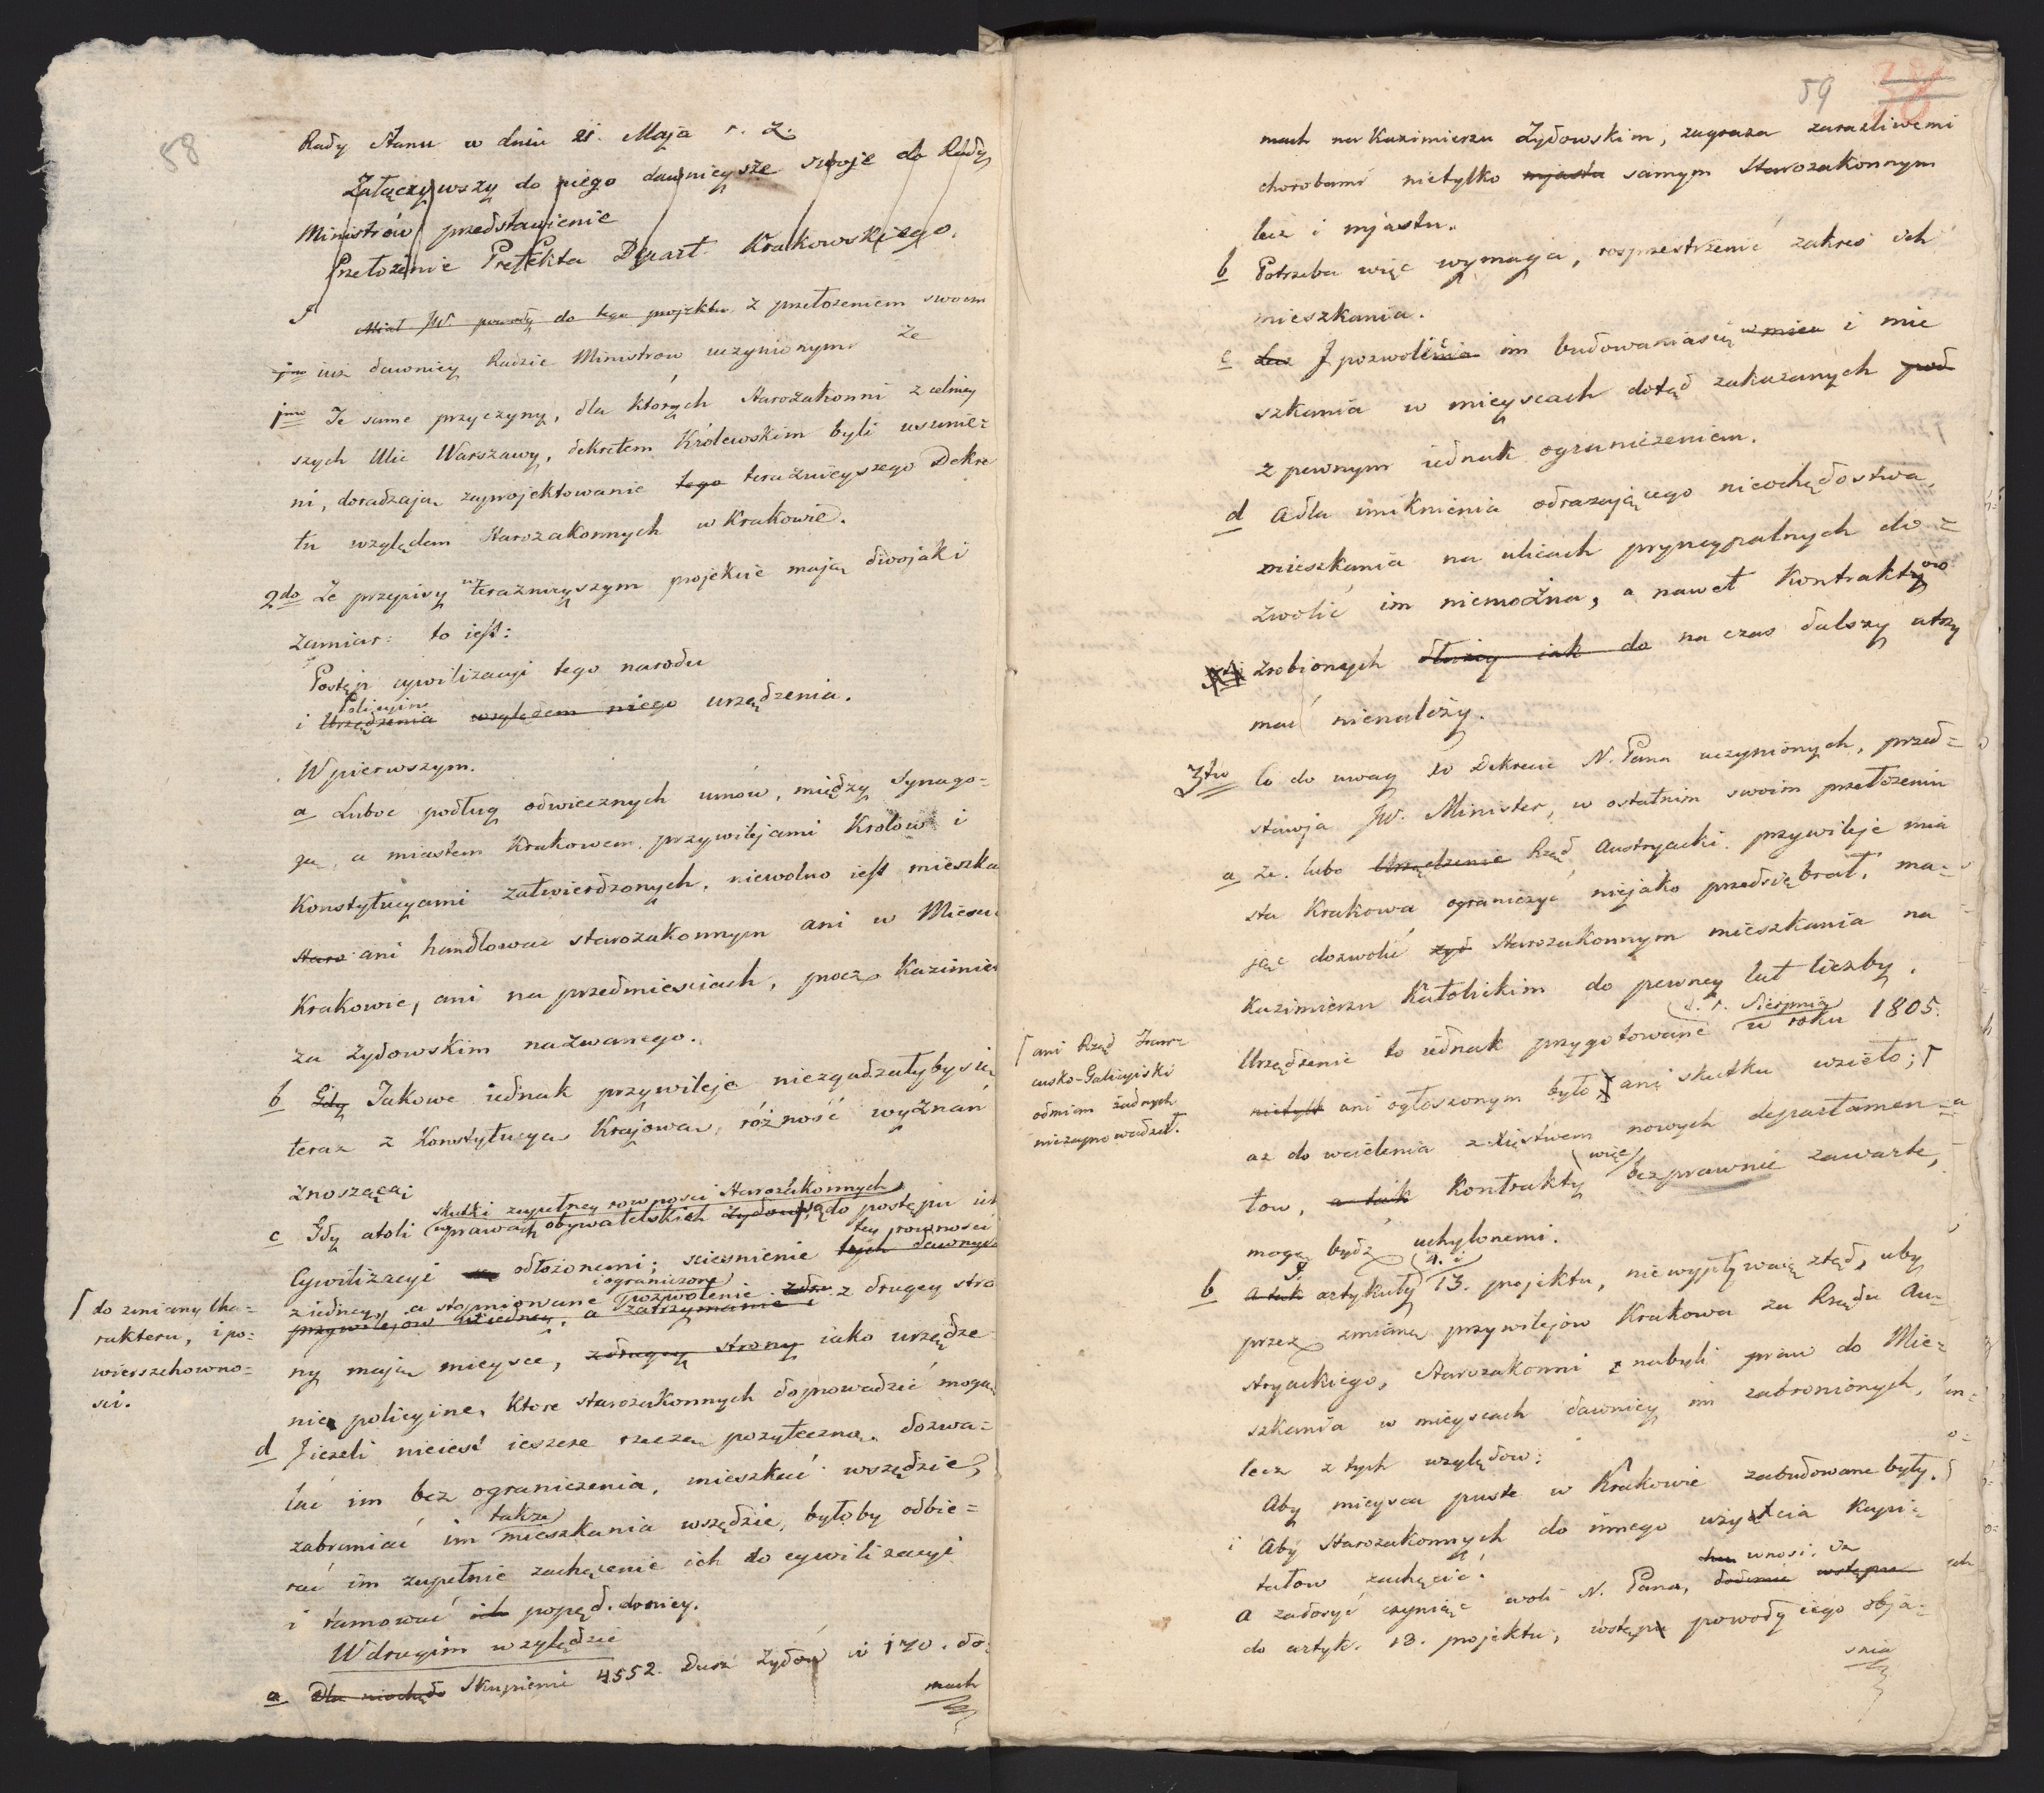 58
Rady Stanu w dniu 21. Maja r. z.
Załączywszy do niego dawnieysze swoje do Rady
Ministrów przedstawienie
Przełożenie Prefekta Depart. Krakowskiego.
Miał JW. powody do tego projektu z przełożeniem swoim
już dawniey Radzie Ministrow uczynionym że
1mo Te same przyczyny, dla których Starozakonni z celniey
szych Ulic Warszawy, dekretem Królewskim byli usunie=
ni, doradzają zaprojektowanie tego teraźnieyszego Dekre
tu względem Starozakonnych w Krakowie.
2do Że przepisy w teraźnieyszym projekcie mają dwojaki
zamiar: to iest:
Postęp cywilizacyi tego narodu
Policyine
i Urządzenia względem niego urządzenia.
W pierwszym.
a Luboć podług odwiecznych umów, między Synago=
gą, a miastem Krakowem, przywilejami Krolow i
Konstytucyami zatwierdzonych, niewolno iest mieszka
Staro ani handlować starozakonnym ani w Mieście
Krakowie, ani na przedmieściach, procz Kazimier
za Żydowskim nazwanego.
b Gdy Takowe iednak przywileje niezgadzałyby się
teraz z Konstytucyą Krajową, różność wyznań
znoszącą;
skutki zupełney rowności Starozakonnych
c Gdy atoli w prawach obywatelskich Żydow, są do postępu ich
Cywilizacyi są odłożonemi; ścieśnienie tych dawnych
tey rowności
z iedney, a stopniowane i ograniczone pozwolenie z drugey stro
przywilejow z iedney, a zatrzymanie i
⌈ do zmiany cha=
rakteru, i po=
wierzchowno=
ści.
ny mają mieysce, z drugey strony iako urządze=
nie policyine, ktore starozakonnych doprowadzić mogą
d Jeżeli nieiest ieszcze rzeczą pożyteczną, dozwa=
lać im bez ograniczenia, mieszkać wszędzie,
także
zabraniać im mieszkania wszędzie, byłoby odbie=
rać im zupełnie zachęcenie ich do cywilizacyi
i tamować ich popęd do niey.
W drugim względzie
a Dla niochędo Skupienie 4552. Dusz Żydów w 170. do=
mach
59
38
mach na Kazimierzu Żydowskim, zagraża zaraźliwemi
chorobami nietylko mjasta samym Starozakonnym
lecz i mjastu.
b Potrzeba więc wymaga, rosprzestrzenić zakres ich
mieszkania.
c Lecz I pozwolenia im budowania się w mieu i mie
szkania w mieyscach dotąd zakazanych pod
z pewnym iednak ograniczeniem.
d A dla uniknienia odrażającego nieochędostwa,
mieszkania na ulicach pryncypalnych do=
zwolić im niemożna, a nawet Kontraktow
zrobionych dłużey iak do na czas dalszy utrzy
mać nienależy.
3tio Co do uwag w Dekrecie N. Pana uczynionych, przed=
stawja JW. Minister, w ostatnim swoim przełożeniu
a że. lubo Urządzenie Rząd Austryacki. przywileje mia
sta Krakowa ograniczyć niejako przedsiębrał, ma=
jąc dozwolić żyd Starozakonnym mieszkania na
Kazimierzu Katolickim do pewney lat liczby.
d. 1. Sierpnia
Urządzenie to iednak przygotowane w roku 1805.
nietylk ani ogłoszonym było ani skutku wzieło; ⌈
⌈ ani Rząd Francu=
cusko-Galicyiski
odmian żadnych
niezaprowadził.
aż do wcielenia z Xięstwem nowych departamen=
tow, a tak Kontrakty więc bezprawnie zawarte,
mogą bydź uchylonemi.
9. 4. i
b a tak artykuły 13. projektu, niewypływaią ztąd, aby
przez zmianę przywilejów Krakowa za Rządu Au=
stryackiego, Starozakonni nabyli praw do Mie=
szkania w mieyscach dawniey im zabronionych,
lecz z tych względow:
Aby mieysca puste w Krakowie zabudowane były.
i Aby Starozakonnych do innego użycia Kapi=
tałow zachęcić.
A zadosyć czyniąc woli N. Pana, wnosi, że
do artyk. 13. projektu, wstępu powody iego obja=
śnia